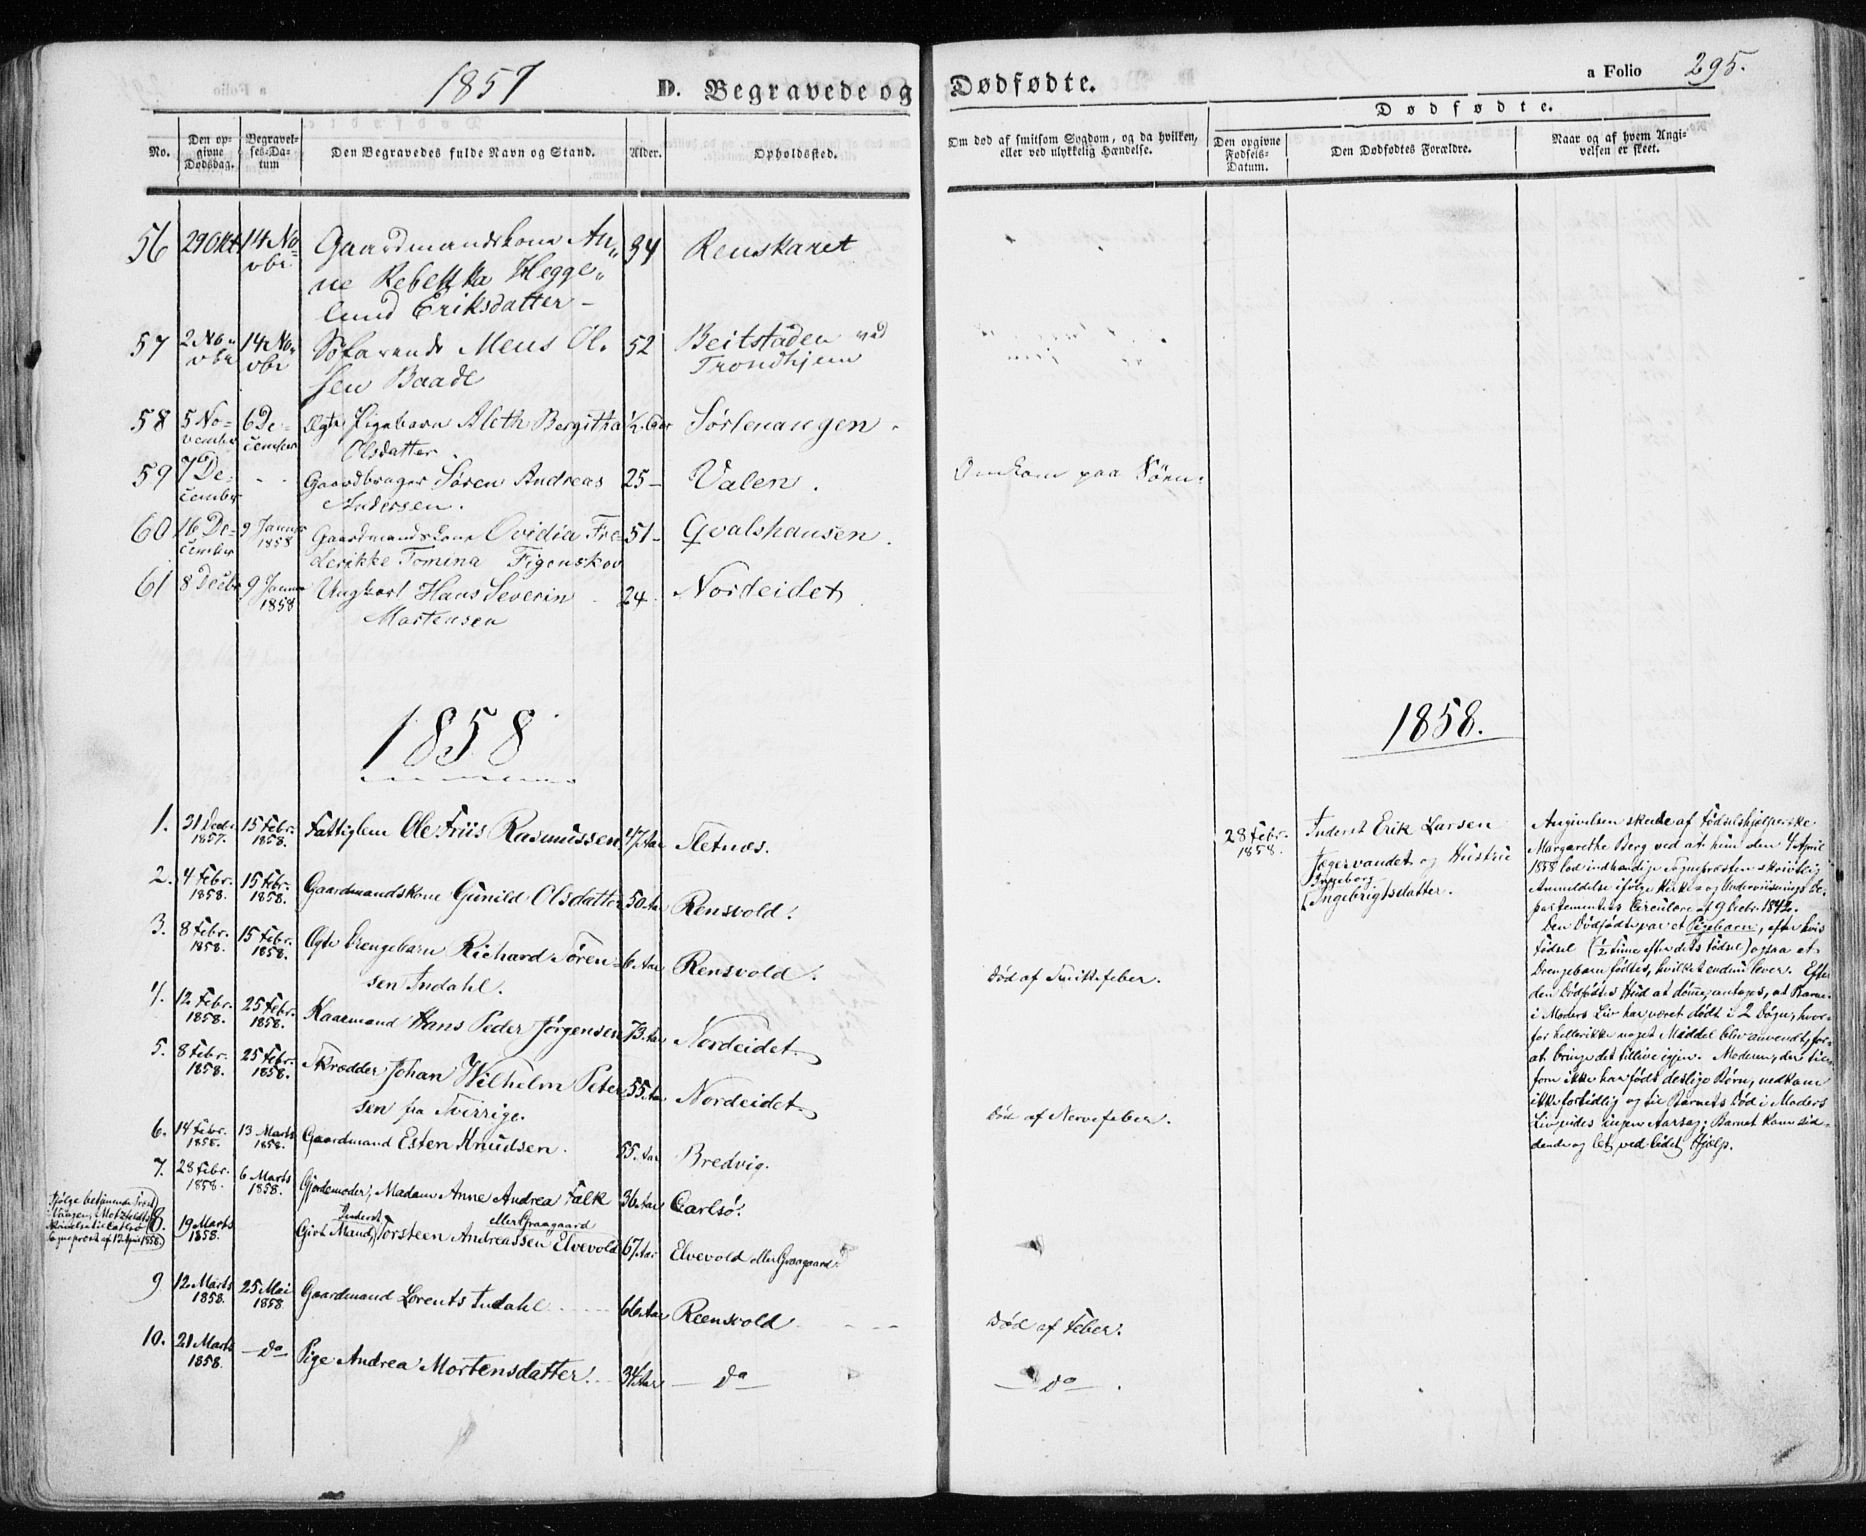 1857
D. Begravede og Dødfødte.
a Folio 295.
No.
Den opgivne Dødsdag.
Begravelses-Datum
Den Begravedes fulde Navn og Stand.
Alder.
Opholdssted.
Om død af smitsom Sygdom, og da hvilken, eller ved ulykkelig Hændelse.
Dødfødte.
Den opgivne Fødsels-Datum.
Den Dødfødtes Forældre.
Naar og af hvem Angivelsen er skeet.
56 29 Okt. 14 No- Gaardmandskone An- 34 Renskaret
vbr ne Rebekka Hegge-
lund Eriksdatter -
57 2 No- 14 No- Søfarende Mens Ol- 52 Beitstaden ved
vbr vbr sen Baade Trondhjem
58 5 No- 6 De- Ægte Pigebarn Aleth Bergitha 1/2 Aar Sørlenangen.
vember cember Olsdatter.
59 7 De- - - Gaardbruger Søren Andreas 25 - Valen. Omkom paa Søen.
cember Andersen.
60 16 De- 9 Januar Gaardmandskone Ovidia Fre- 51 - Gvalshausen.
cember 1858 derikke Tomina Figenskov
61 8 Decbr 9 Januar Ungkarl Hans Severin 24. Nordeidet
1858 Mortensen
1858
1858.
1. 31 Decbr. 15 Febr. Fattiglem Ole Friis Rasmussen. 47. Aar Sletnæs.
1857. 1858.
2. 4 Febr. 15 Febr. Gaardmandskone Gunild Olsdatter 50. Aar Rensvold.
1858. 1858.
3. 8 Febr. 15 Febr. Ægte Drengebarn Richard Søren- 6. Aar Rensvold.
1858. 1858. sen Indahl. Død af Snikkefeber.
4. 12 Febr. 25 Febr. Kaarmand Hans Peder Jørgensen 73. Aar Nordeidet.
1858. 1858.
5. 8 Febr. 25 Febr. Skrædder Johan Wilhelm Peter- 55. Aar Nordeidet.
1858. 1858. sen fra Sverrige. Død af Nervefeber.
6. 14 Febr. 13 Marts Gaardmand Esten Knudsen. 55. Aar Bredvig.
1858. 1858.
7. 28 Febr. 6 Marts Gjordemoder, Madam Anne Andrea Falk 36. Aar Carlsø.
1858. 1858.
8. 19 Marts Inderst eller Graagaard
1858. Gift Mand, Torsteen Andreassen Elvevold 67. Aar Elvevold eller Graagaard
9 12 Marts 25 Mai Gaardmand Lorents Indahl 66. Aar Reensvold Død af Feber.
1858. 1858
10. 21 Marts - do - Pige Andrea Mortensdatter. 34. Aar - do - - do -.
1858.
28 Febr. 1858.
Inderst Erik Larsen
Jægervandet og Hustru
Ingeborg
Ingebrigtsdatter.
Angivelsen skede af Fødselshjælperske
Margarethe Berg ved at hun den 4 April
1858 lod indhændige Sognepræsten skriftlig
Anmeldelse ifølge Kirke- og Underviisnings De-
partementets Circulære af 9 Decbr. 1842.
Den Dødfødte var et Pigebarn, efter hvis
Fødsel (1/2 time efter dets Fødsel) ogsaa et
Drengebarn fødtes, hvilket endnu lever. Efter
den Dødfødtes Hud at dømme, antages, at Barnet
i Moders Liv har været dødt i 2 Døgn, hvor-
for hellerikke noget Middel blev anvendt, for
at bringe det tillive igjen. Moderen, der til-
forn ikke har født deslige Børn, nedkom
ikke fortidlig og til Barnets Død i Moders
Liv vides ingen Aarsag; Barnet kom sid-
dende og let ved lidet Hjælp.